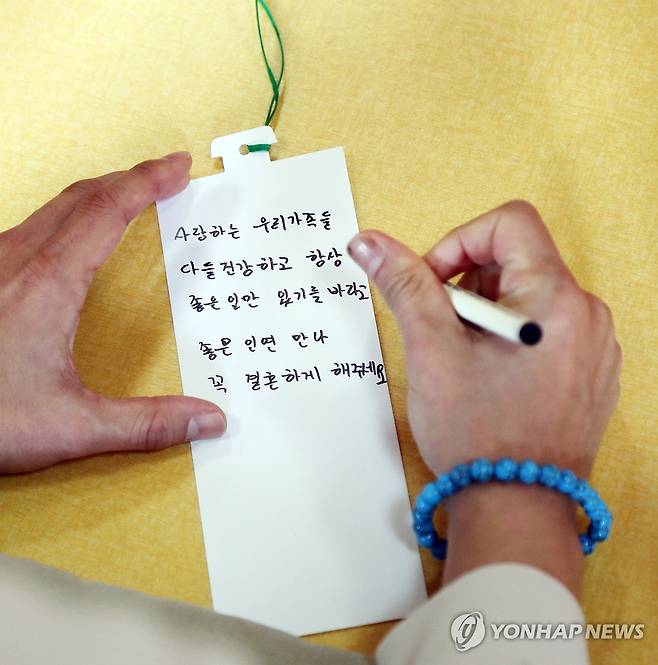 사랑하는 우리가족들
다들건강하고 항상
좋은일만 있기를 바라고
좋은 인연 만나
꼭 결혼하게 해주세요
YONHAP NEWS